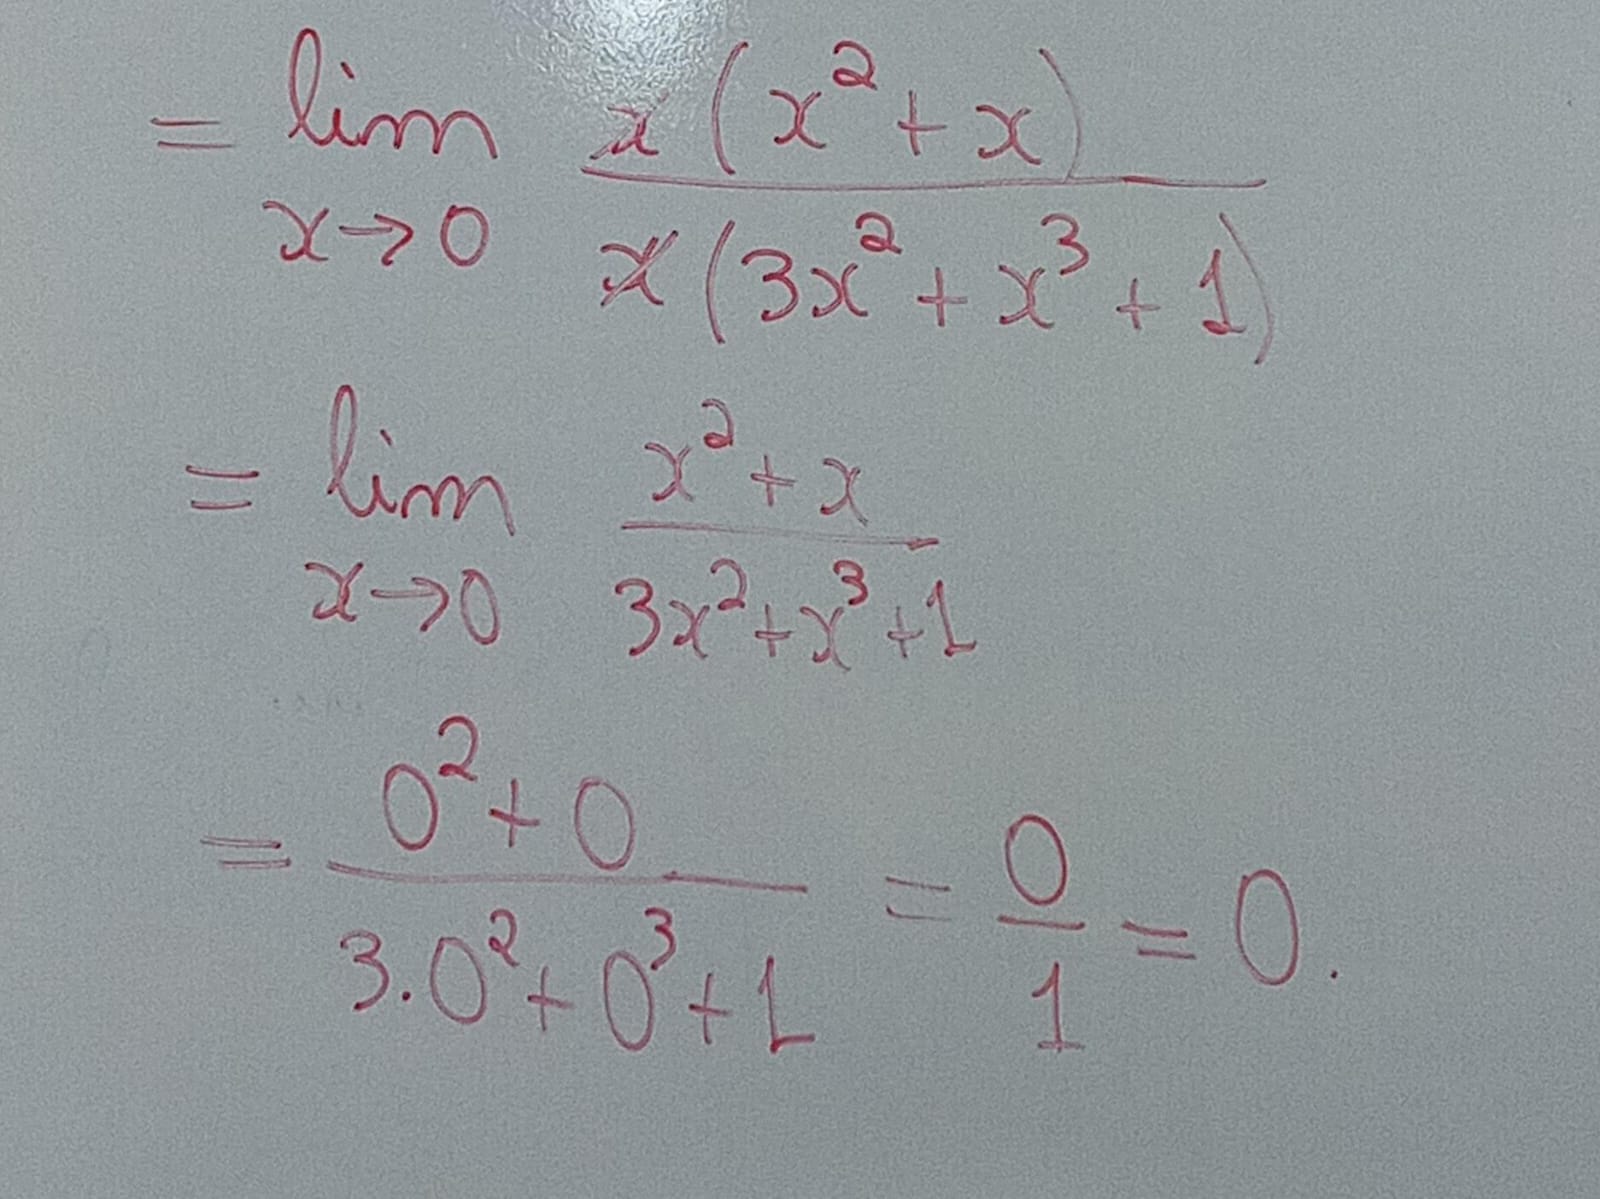 = lim x→0 x(x²+x) / x(3x²+x³+1)
= lim x→0 x²+x / 3x²+x³+1
= 0²+0 / 3.0²+0³+1 = 0/1 = 0.